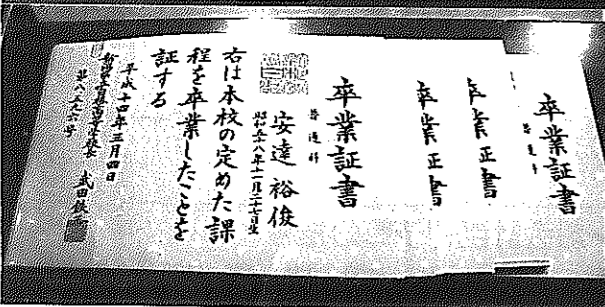 卒業証書
普通科
卒業証書
卒業証書
卒業証書
普通科
安達 裕俊
昭和五十八年十一月二十七日生
右は本校の定めた課
程を卒業したことを
証する
平成十四年三月四日
武田